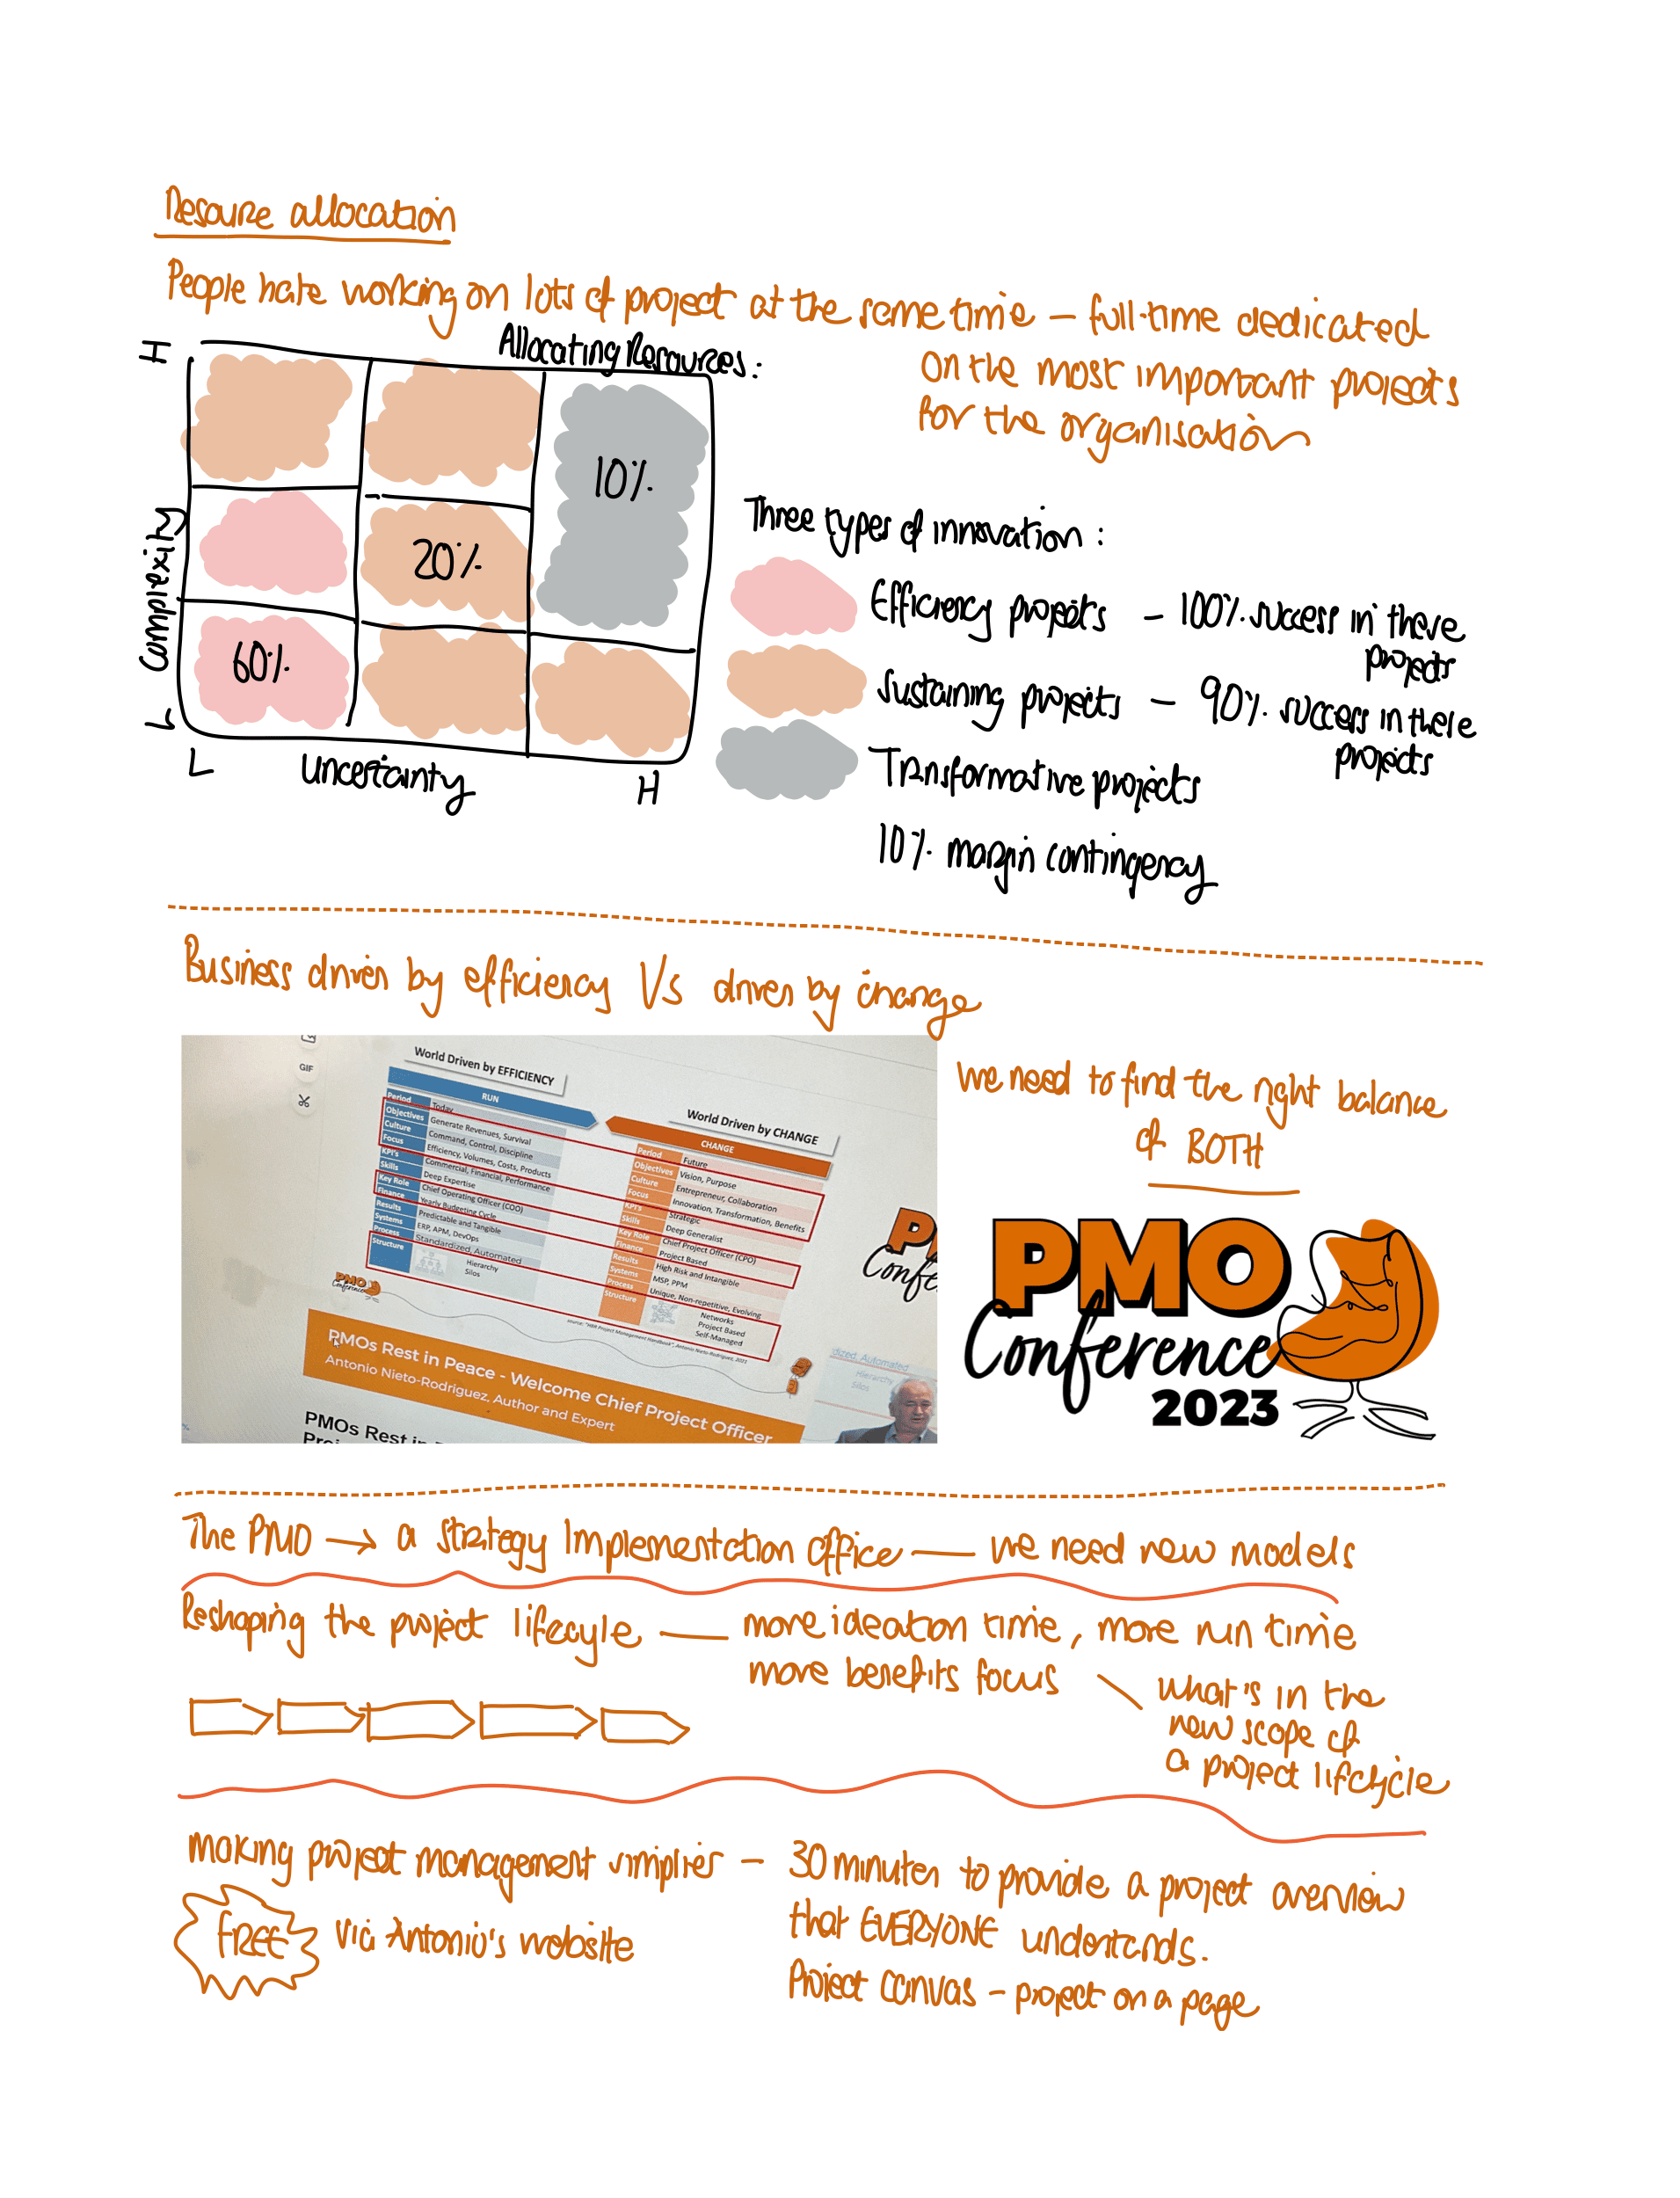 Resource allocation
People hate working on lots of project at the same time – full-time dedicated
on the most important projects
for the organisation
Allocating Resources:
H
Complexity
L
10%
20%
60%
L
Uncertainty
H
Three types of innovation:
Efficiency projects – 100% success in these
projects
Sustaining projects – 90% success in these
projects
Transformative projects
10% margin contingency
Business driven by efficiency Vs driven by change
GIF
World Driven by EFFICIENCY
RUN
Period Today
Objectives Generate Revenues, Survival
Culture Command, Control, Discipline
Focus Efficiency, Volumes, Costs, Products
KPI's Commercial, Financial, Performance
Skills Deep Expertise
Key Role Chief Operating Officer (COO)
Finance Yearly Budgeting Cycle
Results Predictable and Tangible
Systems ERP, APM, DevOps
Process Standardized, Automated
Structure Hierarchy
Silos
World Driven by CHANGE
CHANGE
Period Future
Objectives Vision, Purpose
Culture Entrepreneur, Collaboration
Focus Innovation, Transformation, Benefits
KPI's Strategic
Skills Deep Generalist
Key Role Chief Project Officer (CPO)
Finance Project Based
Results High Risk and Intangible
Systems MSP, PPM
Process Unique, Non-repetitive, Evolving
Structure Networks
Project Based
Self-Managed
source: "HBR Project Management Handbook", Antonio Nieto-Rodriguez, 2021
PMO
Conference
PMOs Rest in Peace - Welcome Chief Project Officer
Antonio Nieto-Rodriguez, Author and Expert
PMOs Rest in
dized, Automated
Hierarchy
Silos
we need to find the right balance
of BOTH
PMO
Conference
2023
The PMO → a strategy Implementation office — we need new models
Reshaping the project lifecyle — more ideation time, more run time
more benefits focus
what's in the
new scope of
a project lifecycle
Making project management simplier – 30 minutes to provide a project overview
that EVERYONE understands.
FREE via Antonio's website
Project canvas – project on a page